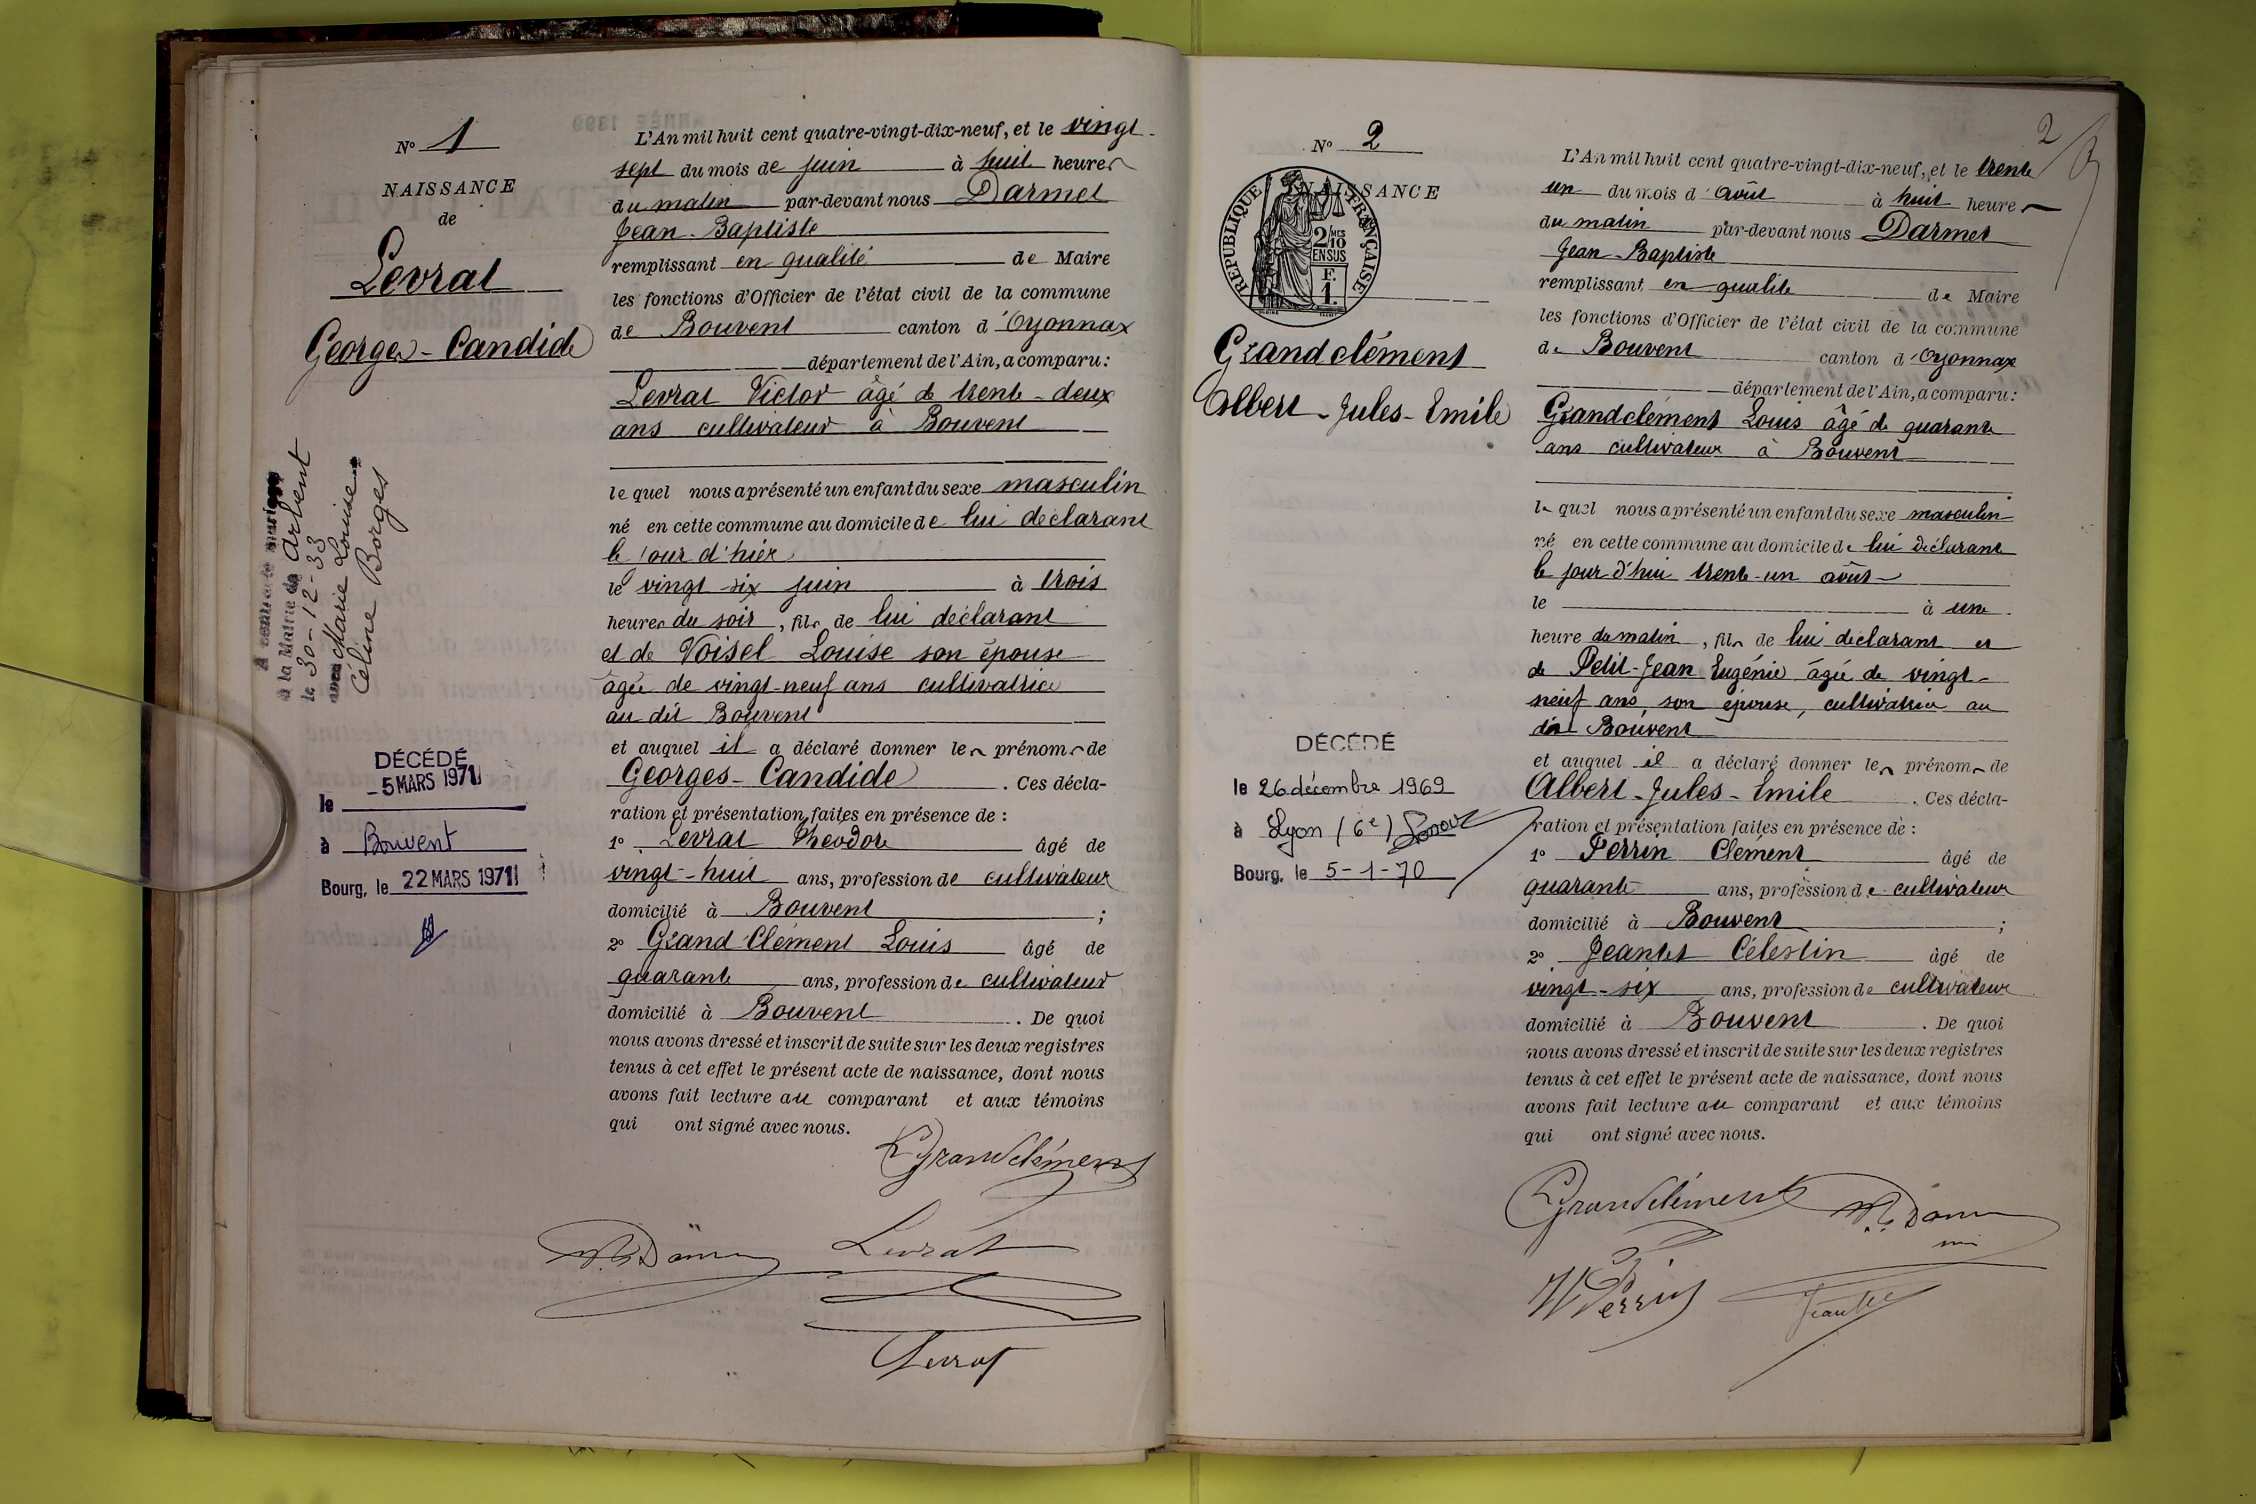 N° 1
NAISSANCE
de
Levrat
Georges-Candide
A contracté mariage
à la Mairie de Arbent
le 30-12-33
avec Marie Louise
Céline Borges
DÉCÉDÉ
le -5 MARS 1971
à Bouvent
Bourg, le 22 MARS 1971
L'An mil huit cent quatre-vingt-dix-neuf, et le vingt-
sept du mois de juin à huit heures
du matin par-devant nous Darmet
Jean-Baptiste
remplissant en qualité de Maire
les fonctions d'Officier de l'état civil de la commune
de Bouvent canton d'Oyonnax
département de l'Ain, a comparu:
Levrat Victor âgé de trente-deux
ans cultivateur à Bouvent
le quel nous a présenté un enfant du sexe masculin
né en cette commune au domicile de lui déclarant
le jour d'hier
le vingt-six juin à trois
heures du soir, fils de lui déclarant
et de Voisel Louise son épouse
âgée de vingt-neuf ans cultivatrice
au dit Bouvent
et auquel il a déclaré donner les prénoms de
Georges-Candide. Ces décla-
ration et présentation faites en présence de :
1° Levrat Théodore âgé de
vingt-huit ans, profession de cultivateur
domicilié à Bouvent ;
2° Grand-Clément Louis âgé de
quarante ans, profession de cultivateur
domicilié à Bouvent. De quoi
nous avons dressé et inscrit de suite sur les deux registres
tenus à cet effet le présent acte de naissance, dont nous
avons fait lecture au comparant et aux témoins
qui ont signé avec nous.
Grandclément
Levrat
Levrat
2
N° 2
NAISSANCE
RÉPUBLIQUE FRANÇAISE
2/10 MES
EN SUS
F.
1.
Grandclément
Albert-Jules-Emile
DÉCÉDÉ
le 26 décembre 1969
à Lyon (6e)
Bourg, le 5-1-70
L'An mil huit cent quatre-vingt-dix-neuf, et le trente
un du mois d'août à huit heures
du matin par-devant nous Darmet
Jean-Baptiste
remplissant en qualité de Maire
les fonctions d'Officier de l'état civil de la commune
de Bouvent canton d'Oyonnax
département de l'Ain, a comparu:
Grandclément Louis âgé de quarante
ans cultivateur à Bouvent
le quel nous a présenté un enfant du sexe masculin
né en cette commune au domicile de lui déclarant
le jour d'hui trente-un août
le à une
heure du matin, fils de lui déclarant et
de Petit-Jean Eugénie âgée de vingt-
neuf ans, son épouse, cultivatrice au
dit Bouvent
et auquel il a déclaré donner les prénoms de
Albert-Jules-Emile. Ces décla-
ration et présentation faites en présence de :
1° Perrin Clément âgé de
quarante ans, profession de cultivateur
domicilié à Bouvent ;
2° Jeantet Célestin âgé de
vingt-six ans, profession de cultivateur
domicilié à Bouvent. De quoi
nous avons dressé et inscrit de suite sur les deux registres
tenus à cet effet le présent acte de naissance, dont nous
avons fait lecture au comparant et aux témoins
qui ont signé avec nous.
Grandclément
Perrin
Jeantet